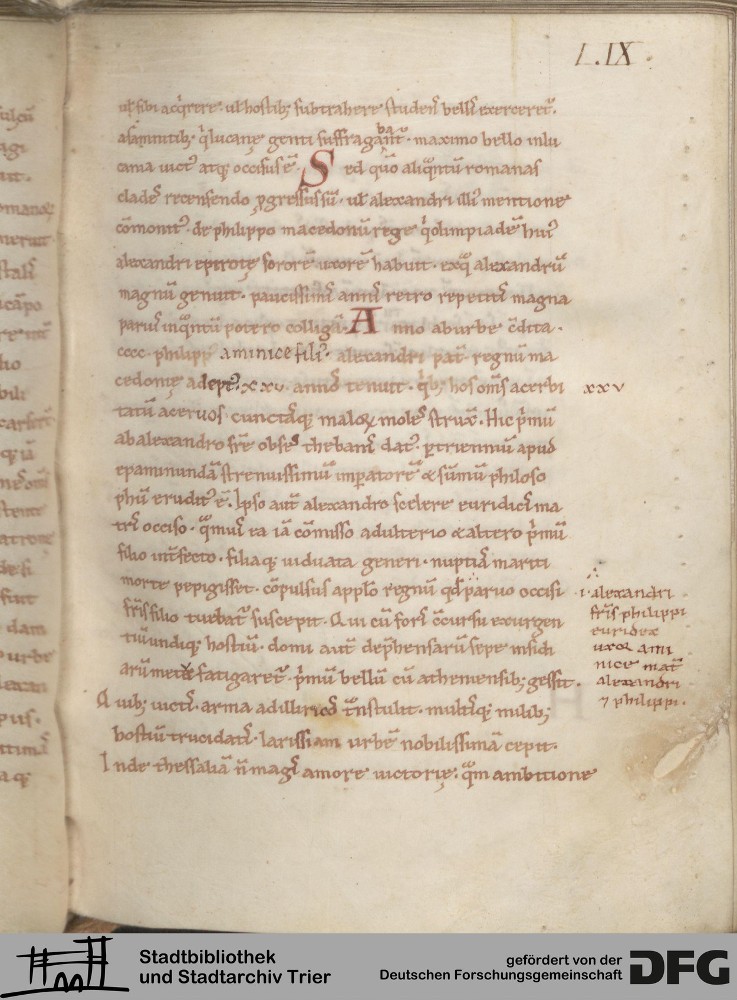 L.IX.
ul̄ sibi acq̇rere. ul̄ hostib; subtrahere studens bellū exerceret᷒.
asamnitib;. q̇ lucanę genti suffragabant᷒. maximo bello inlu
cania uict᷒ atq; occisus ē. Sed qm̄ aliq̄ntū romanas
clades recensendo ꝓgressus sū. ul̄ alexandri illi᷒ mentione
cōmonit᷒. de philippo macedonū rege q̇ olimpiadē hui᷒
alexandri epirotę sororē uxorē habuit. ex q̄ alexandrū
magnū genuit. paucissimis annis retro repetitis magna
paruis inq̄ntū potero colligā. Anno ab urbe c̄dita.
cccc. philipp᷒ aminicefili᷒. alexandri pat̄. regnū ma
cedonię adept᷒. xxv. annis tenuit. q̇b; hos om̄s acerbi
xxv
tatū aceruos. cunctasq; maloꝝ moles strux̄. Hic p̄mū
ab alexandro fr̄e obses thebanis dat᷒. ꝑ triennium apud
epaminundā strenuissimū imꝑatorē & sūmū philoso
phū erudit᷒ ē. Ipso aut̄ alexandro scelere euridicis ma
tris occiso. q̄muis ea iā cōmisso adulterio & altero p̄mū
filio int̄fecto. filiaq; uiduata generi. nuptias mariti
morte pepigisset. cōpulsus app̄lo regnū qd̄ paruo occisi
fr̄is filio tuebat᷒ suscepit. Qui cū foris c̄cursu exurgen
tiū undiq; hostiū. domi aut̄ dep̄hensarū sepe insidi
arū metu fatigaret᷒. p̄mū bellū cū atheniensib; gessit.
Quib; uictis. arma ad illiricos t̄nstulit. multisq; milib;
hostiū trucidatis. larissiam urbē nobilissimā cepit.
Inde thessaliā n̄ magis amore uictorię. qm̄ ambitione
.i. alexandri
fr̄is philippi
euridex
uxor ami
nice mat̄
alexandri
⁊ philippi.
Stadtbibliothek
und Stadtarchiv Trier
gefördert von der
Deutschen Forschungsgemeinschaft
DFG